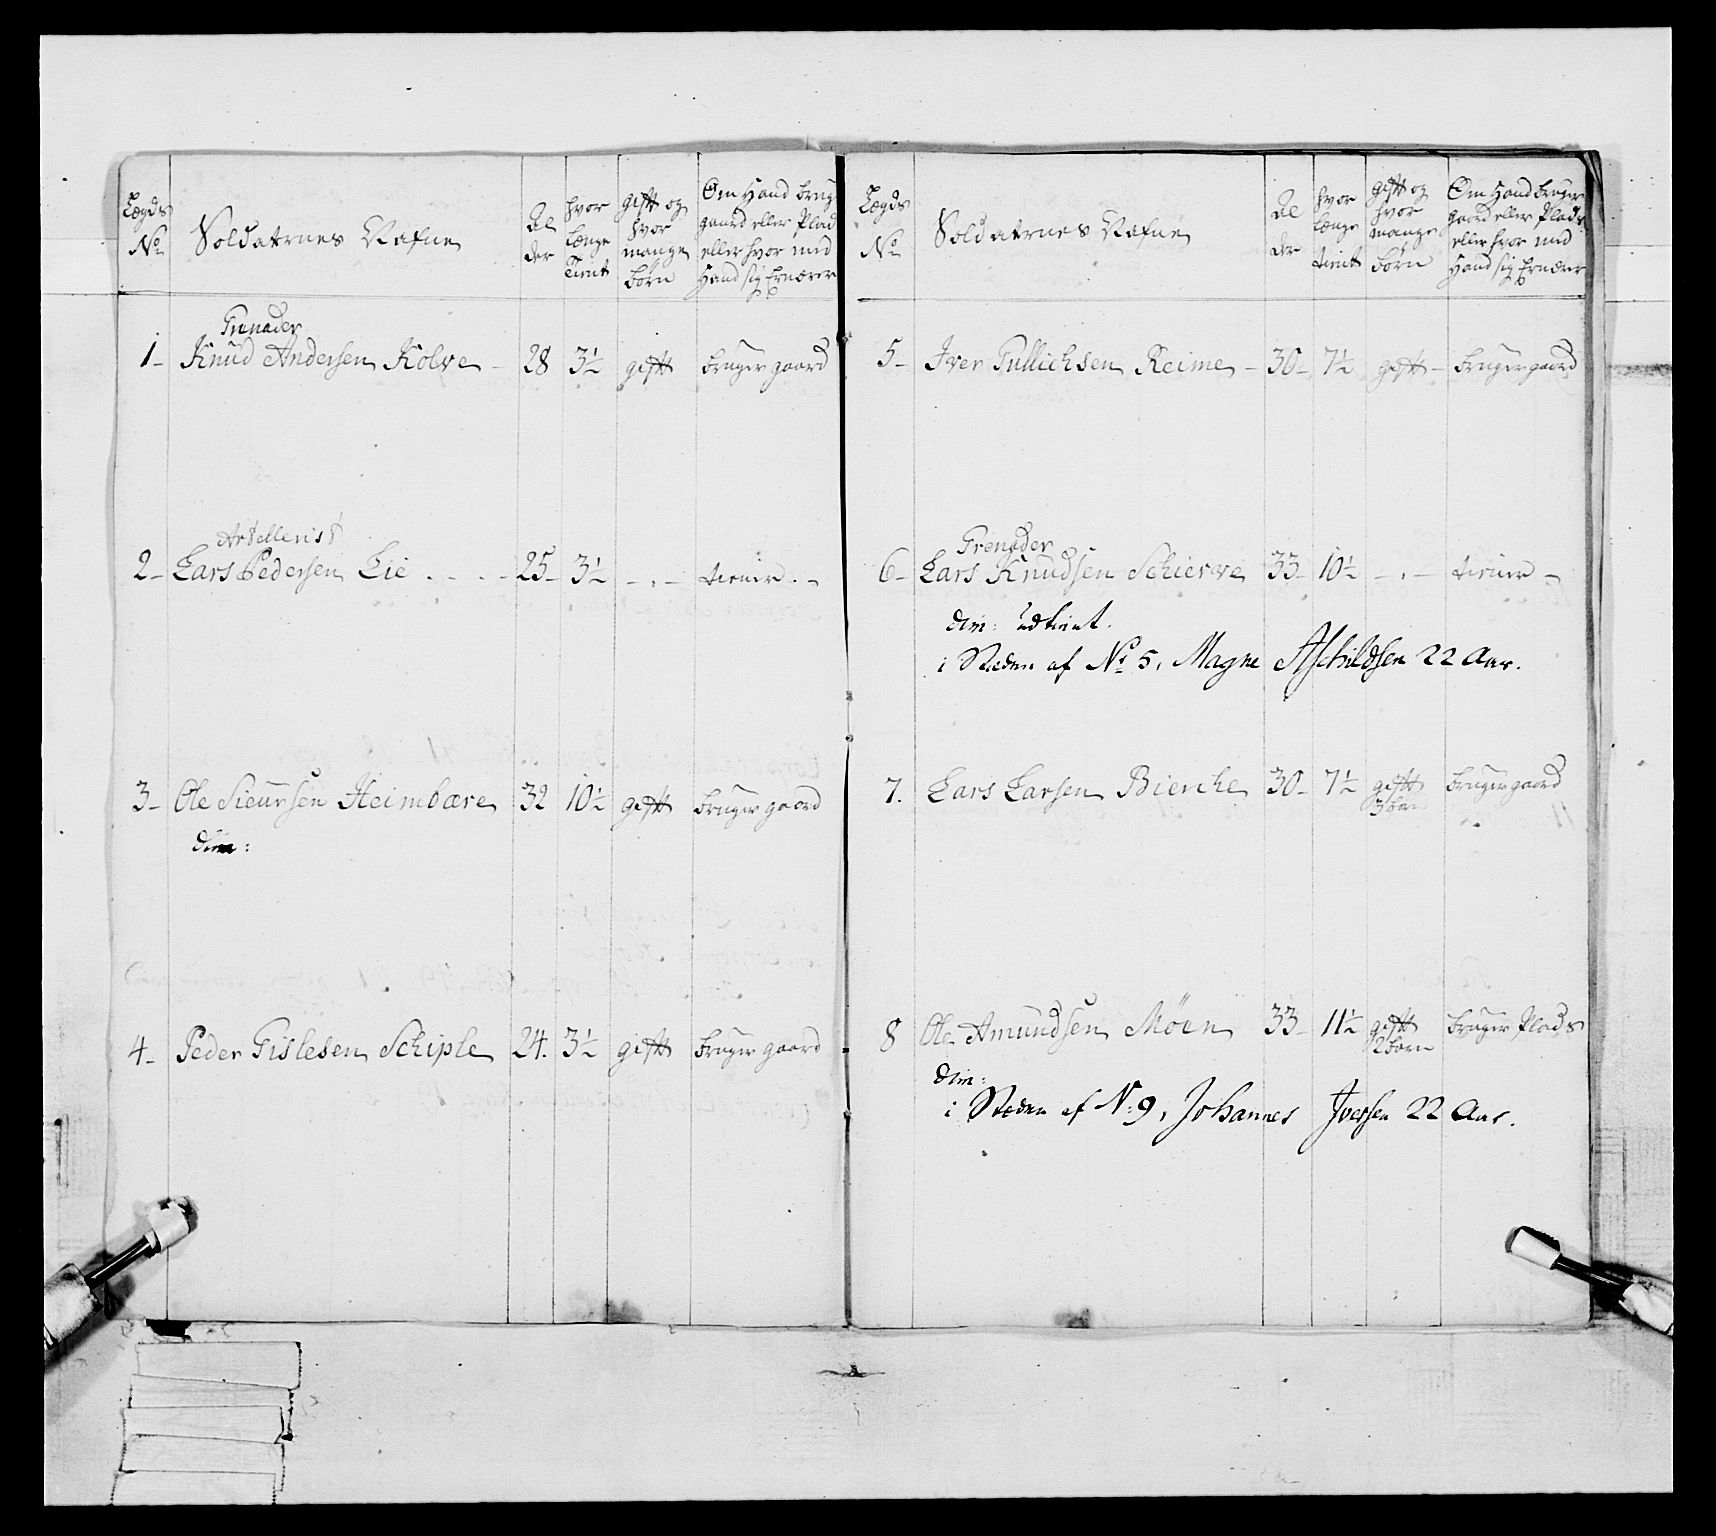 Lægds No
Soldaternes Nafne
Al der
hvor længe tient
gift og hvor mange børn
Om Hand brug gaard eller Plad eller hvor med Hand sig Ernærer
Grenader
1- Knud Andersen Kolve - 28 3½ gift bruger gaard
Artellerist
2- Lars Pedersen Lie . . . - 25- 3½ - . - tiener . -
3- Ole Sieursen Heimbære 32 10½ gift bruger gaord
dim:
4- Peder Gislesen Schiple 24. 3½ gift bruger gaord
Lægds No
Soldaternes Nafne
Al der
hvor længe tient
gift og hvor mange børn
Om Hand bruger gaord eller Plads eller hvor med Hand sig Ernærer
5- Iver Gullichsen Reime - 30- 7½ gift - bruger gaord
Grenader
6- Lars Knudsen Schierve 33- 10½ - . - tiener -
dim: udtient.
i Steden af No 5, Magne Aschildsen 22 Aar.
7. Lars Larsen Bierche 30- 7½ gift bruger gaord
3 børn
8 Ole Amundsen Möen 33- 11½ gift bruger Plads
2 børn
dim:
i Steden af N: 9, Johannes Iversen 22 Aar.